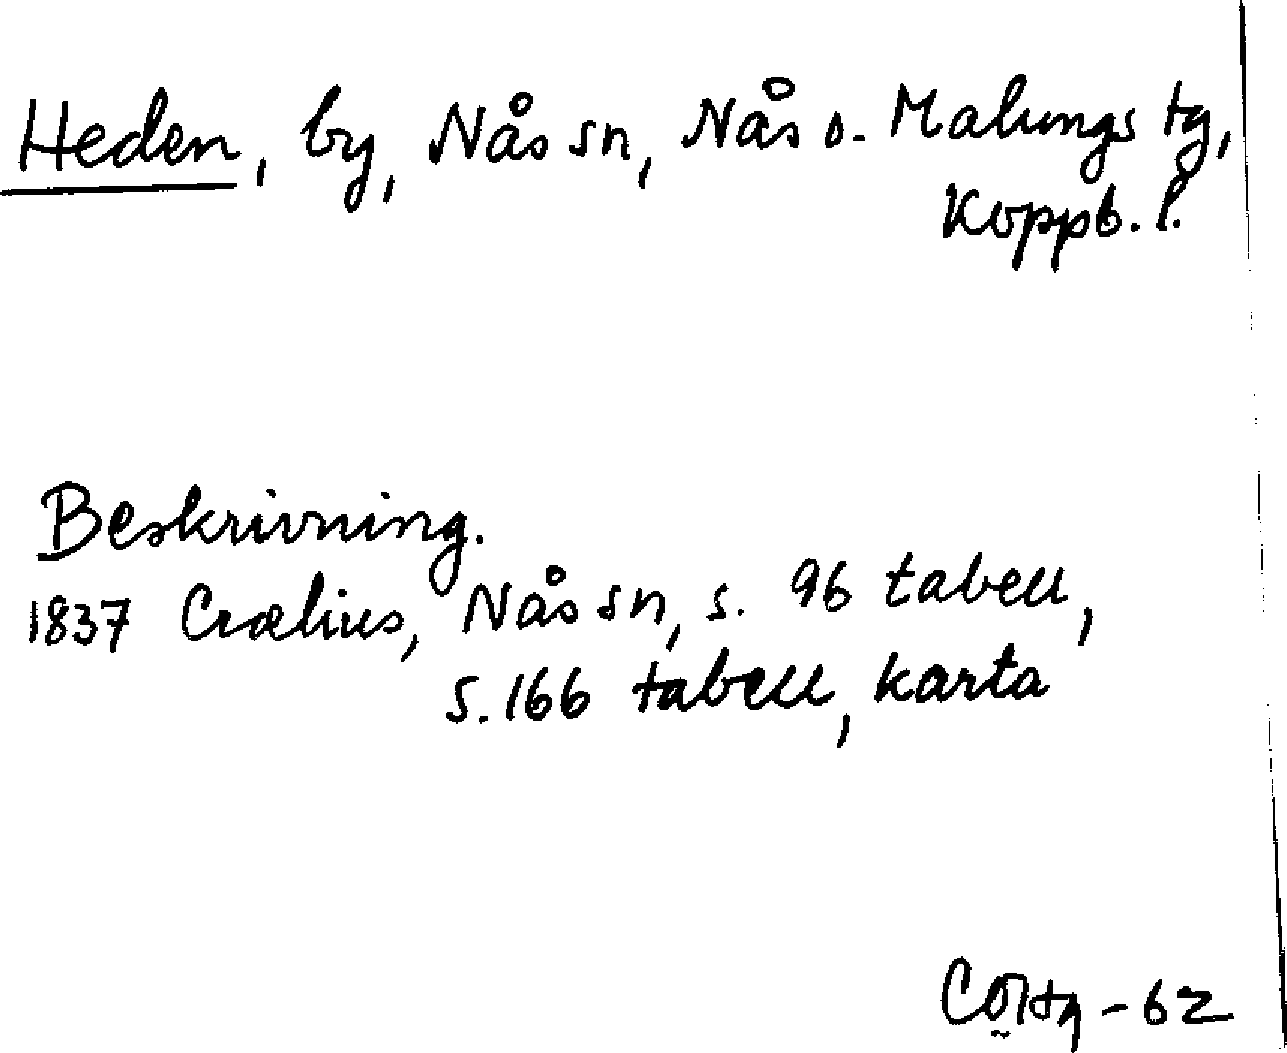 Heden, by, Nås sn, Nås o. Malungs tg,
Koppb. l.
Beskrivning.
1837 Crælius, Nås sn, s. 96 tabell,
s. 166 tabell, karta
-62